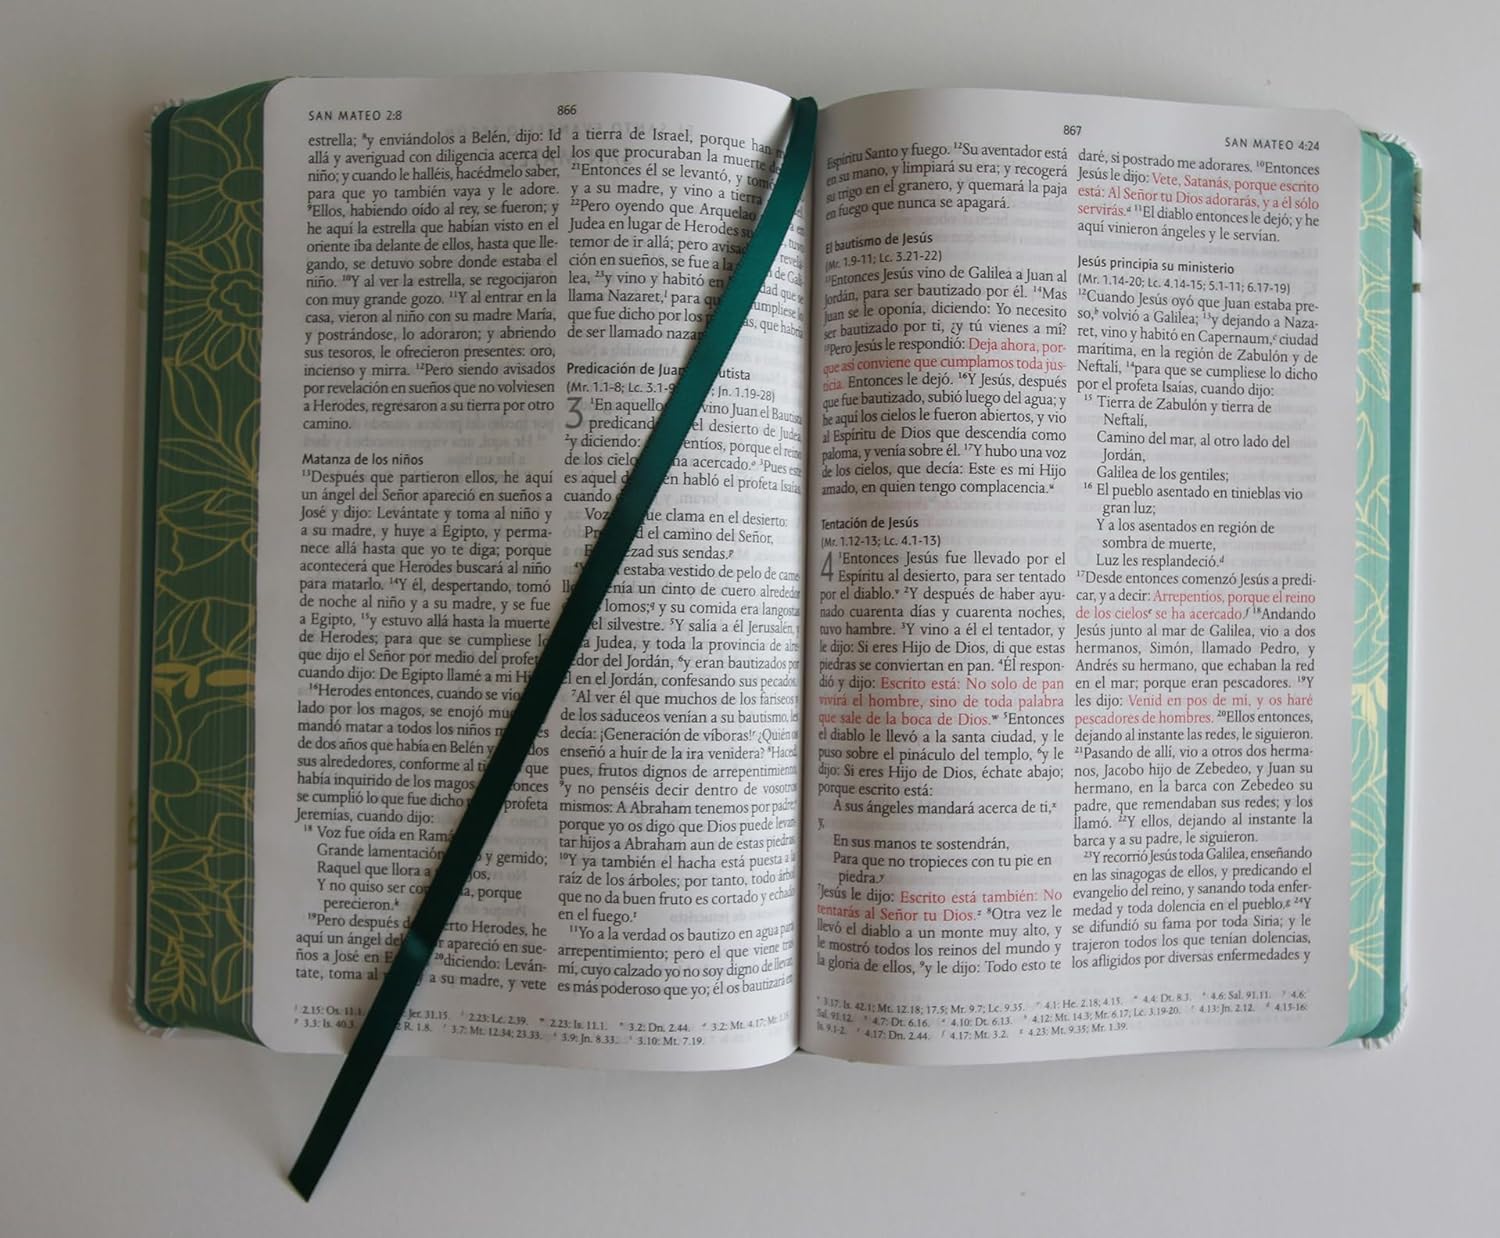 SAN MATEO 2:8
866
estrella; ⁸y enviándolos a Belén, dijo: Id
allá y averiguad con diligencia acerca del
niño; y cuando le halléis, hacédmelo saber,
para que yo también vaya y le adore.
⁹Ellos, habiendo oído al rey, se fueron; y
he aquí la estrella que habían visto en el
oriente iba delante de ellos, hasta que lle-
gando, se detuvo sobre donde estaba el
niño. ¹⁰Y al ver la estrella, se regocijaron
con muy grande gozo. ¹¹Y al entrar en la
casa, vieron al niño con su madre María,
y postrándose, lo adoraron; y abriendo
sus tesoros, le ofrecieron presentes: oro,
incienso y mirra. ¹²Pero siendo avisados
por revelación en sueños que no volviesen
a Herodes, regresaron a su tierra por otro
camino.
Matanza de los niños
¹³Después que partieron ellos, he aquí
un ángel del Señor apareció en sueños a
José y dijo: Levántate y toma al niño y
a su madre, y huye a Egipto, y perma-
nece allá hasta que yo te diga; porque
acontecerá que Herodes buscará al niño
para matarlo. ¹⁴Y él, despertando, tomó
de noche al niño y a su madre, y se fue
a Egipto, ¹⁵y estuvo allá hasta la muerte
de Herodes; para que se cumpliese lo
que dijo el Señor por medio del profeta,
cuando dijo: De Egipto llamé a mi
¹⁶Herodes entonces, cuando se vio
lado por los magos, se enojó
mandó matar a todos los niños
de dos años que había en Belén y
sus alrededores, conforme al que
había inquirido de los magos.
se cumplió lo que fue dicho profeta
Jeremías, cuando dijo:
¹⁸ Voz fue oída en Ramá
Grande lamentación, y gemido;
Raquel que llora a
Y no quiso ser porque
perecieron.ᵏ
¹⁹Pero después Herodes, he
aquí un ángel del apareció en sue-
ños a José en ²⁰diciendo: Leván-
tate, toma al y a su madre, y vete
a tierra de Israel, porque han
los que procuraban la muerte
²¹Entonces él se levantó, y tomó
y a su madre, y vino a tierra
²²Pero oyendo que Arquelao
Judea en lugar de Herodes
temor de ir allá; pero
ción en sueños, se fue a la
lea, ²³y vino y habitó en
llama Nazaret,ˡ para
que fue dicho por los que
de ser llamado
Predicación de Juan
(Mr. 1.1-8; Lc. Jn. 1.19-28)
3 ¹En vino Juan el Bautista
predicando el desierto de Judea,
²y diciendo: porque el reino
de los cielos ha acercado.º ³Pues este
es aquel habló el profeta Isaías,
cuando
Voz que clama en el desierto:
el camino del Señor,
sus sendas.ᵖ
estaba vestido de pelo de
un cinto de cuero alrededor
lomos;ᑫ y su comida era langostas
silvestre. ⁵Y salía a él Jerusalén, y
Judea, y toda la provincia de
del Jordán, ⁶y eran bautizados por
él en el Jordán, confesando sus pecados.
⁷Al ver él que muchos de los fariseos y
de los saduceos venían a su bautismo, les
decía: ¡Generación de víboras!ʳ ¿Quién os
enseñó a huir de la ira venidera? ⁸Haced,
pues, frutos dignos de arrepentimiento,
⁹y no penséis decir dentro de vosotros
mismos: A Abraham tenemos por padre;
porque yo os digo que Dios puede levan-
tar hijos a Abraham aun de estas piedras.
¹⁰Y ya también el hacha está puesta a la
raíz de los árboles; por tanto, todo árbol
que no da buen fruto es cortado y echado
en el fuego.ᵗ
¹¹Yo a la verdad os bautizo en agua para
arrepentimiento; pero el que viene tras
mí, cuyo calzado yo no soy digno de llevar,
es más poderoso que yo; él os bautizará en
2.15: Os. 11.1. Jer. 31.15. 2.23: Lc. 2.39. 2.23: Is. 11.1. 3.2: Dn. 2.44. 3.2: Mt. 4.17;
3.3: Is. 40.3. R. 1.8. 3.7: Mt. 12.34; 23.33. 3.9: Jn. 8.33. 3.10: Mt. 7.19.
867
SAN MATEO 4:24
Espíritu Santo y fuego. ¹²Su aventador está
en su mano, y limpiará su era; y recogerá
su trigo en el granero, y quemará la paja
en fuego que nunca se apagará.
El bautismo de Jesús
(Mr. 1.9-11; Lc. 3.21-22)
¹³Entonces Jesús vino de Galilea a Juan al
Jordán, para ser bautizado por él. ¹⁴Mas
Juan se le oponía, diciendo: Yo necesito
ser bautizado por ti, ¿y tú vienes a mí?
¹⁵Pero Jesús le respondió: Deja ahora, por-
que así conviene que cumplamos toda jus-
ticia. Entonces le dejó. ¹⁶Y Jesús, después
que fue bautizado, subió luego del agua; y
he aquí los cielos le fueron abiertos, y vio
al Espíritu de Dios que descendía como
paloma, y venía sobre él. ¹⁷Y hubo una voz
de los cielos, que decía: Este es mi Hijo
amado, en quien tengo complacencia.ᵘ
Tentación de Jesús
(Mr. 1.12-13; Lc. 4.1-13)
4 ¹Entonces Jesús fue llevado por el
Espíritu al desierto, para ser tentado
por el diablo.ᵛ ²Y después de haber ayu-
nado cuarenta días y cuarenta noches,
tuvo hambre. ³Y vino a él el tentador, y
le dijo: Si eres Hijo de Dios, di que estas
piedras se conviertan en pan. ⁴Él respon-
dió y dijo: Escrito está: No solo de pan
vivirá el hombre, sino de toda palabra
que sale de la boca de Dios.ʷ ⁵Entonces
el diablo le llevó a la santa ciudad, y le
puso sobre el pináculo del templo, ⁶y le
dijo: Si eres Hijo de Dios, échate abajo;
porque escrito está:
A sus ángeles mandará acerca de ti,ˣ
y,
En sus manos te sostendrán,
Para que no tropieces con tu pie en
piedra.ʸ
⁷Jesús le dijo: Escrito está también: No
tentarás al Señor tu Dios.ᶻ ⁸Otra vez le
llevó el diablo a un monte muy alto, y
le mostró todos los reinos del mundo y
la gloria de ellos, ⁹y le dijo: Todo esto te
daré, si postrado me adorares. ¹⁰Entonces
Jesús le dijo: Vete, Satanás, porque escrito
está: Al Señor tu Dios adorarás, y a él sólo
servirás.ᵃ ¹¹El diablo entonces le dejó; y he
aquí vinieron ángeles y le servían.
Jesús principia su ministerio
(Mr. 1.14-20; Lc. 4.14-15; 5.1-11; 6.17-19)
¹²Cuando Jesús oyó que Juan estaba pre-
so,ᵇ volvió a Galilea; ¹³y dejando a Naza-
ret, vino y habitó en Capernaum,ᶜ ciudad
marítima, en la región de Zabulón y de
Neftalí, ¹⁴para que se cumpliese lo dicho
por el profeta Isaías, cuando dijo:
¹⁵ Tierra de Zabulón y tierra de
Neftalí,
Camino del mar, al otro lado del
Jordán,
Galilea de los gentiles;
¹⁶ El pueblo asentado en tinieblas vio
gran luz;
Y a los asentados en región de
sombra de muerte,
Luz les resplandeció.ᵈ
¹⁷Desde entonces comenzó Jesús a predi-
car, y a decir: Arrepentíos, porque el reino
de los cielosᵉ se ha acercado.ᶠ ¹⁸Andando
Jesús junto al mar de Galilea, vio a dos
hermanos, Simón, llamado Pedro, y
Andrés su hermano, que echaban la red
en el mar; porque eran pescadores. ¹⁹Y
les dijo: Venid en pos de mí, y os haré
pescadores de hombres. ²⁰Ellos entonces,
dejando al instante las redes, le siguieron.
²¹Pasando de allí, vio a otros dos herma-
nos, Jacobo hijo de Zebedeo, y Juan su
hermano, en la barca con Zebedeo su
padre, que remendaban sus redes; y los
llamó. ²²Y ellos, dejando al instante la
barca y a su padre, le siguieron.
²³Y recorrió Jesús toda Galilea, enseñando
en las sinagogas de ellos, y predicando el
evangelio del reino, y sanando toda enfer-
medad y toda dolencia en el pueblo.ᵍ ²⁴Y
se difundió su fama por toda Siria; y le
trajeron todos los que tenían dolencias,
los afligidos por diversas enfermedades y
3.17: Is. 42.1; Mt. 12.18; 17.5; Mr. 9.7; Lc. 9.35. 4.1: He. 2.18; 4.15. 4.4: Dt. 8.3. 4.6: Sal. 91.11. 4.6:
Sal. 91.12. 4.7: Dt. 6.16. 4.10: Dt. 6.13. 4.12: Mt. 14.3; Mr. 6.17; Lc. 3.19-20. 4.13: Jn. 2.12. 4.15-16:
Is. 9.1-2. 4.17: Dn. 2.44. 4.17: Mt. 3.2. 4.23: Mt. 9.35; Mr. 1.39.